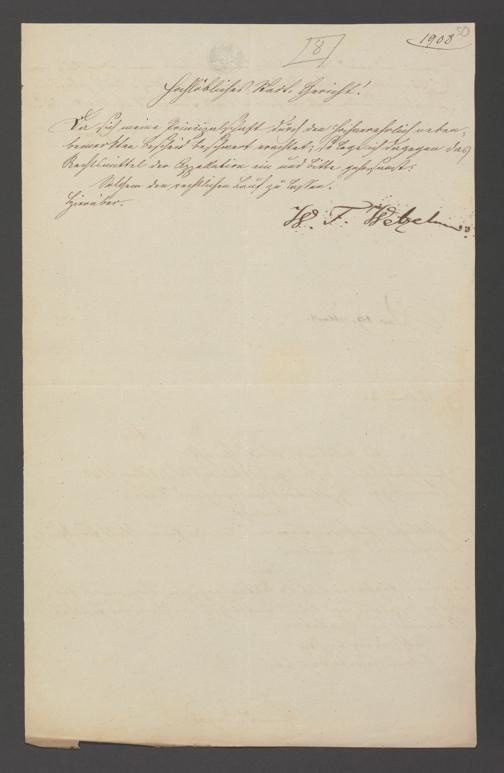 80
1908
[8]
Hochlöbliches Stadt-Gericht!
Da sich meine Prinzipalschaft durch den hochverehrlich neben-
bemerkten Bescheid beschwert erachtet; so lege ich dagegen das
Rechtsmittel der Appellation ein und bitte gehorsamst:
Solchem den rechtlichen Lauf zu lassen.
Hierüber.
W. F.